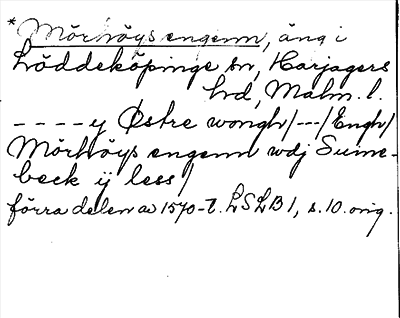 *Mörhöys engenn, äng i
Löddeköpinge sn, Harjagers
hd, Malm. l.
- - - - y Østre wongh/---/Engh/
Mörhöys engenn wdj Sume-
beck ij less/
förra delen av 1570-t. LSLB 1, s. 10. orig.